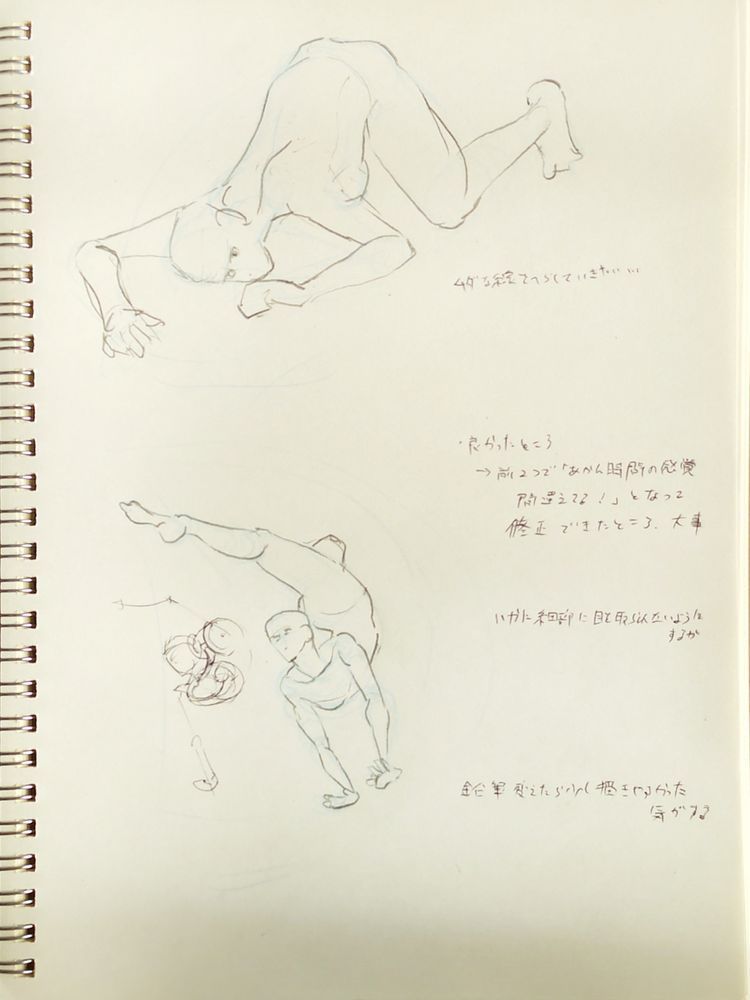 ムダな線をへらしていきたい…
・良かったところ
→前2つで「あかん時間の感覚
間違えてる!」となって
修正できたところ、大事
いかに細部に目を取られないように
するか
鉛筆変えたら少し描きやすかった
気がする